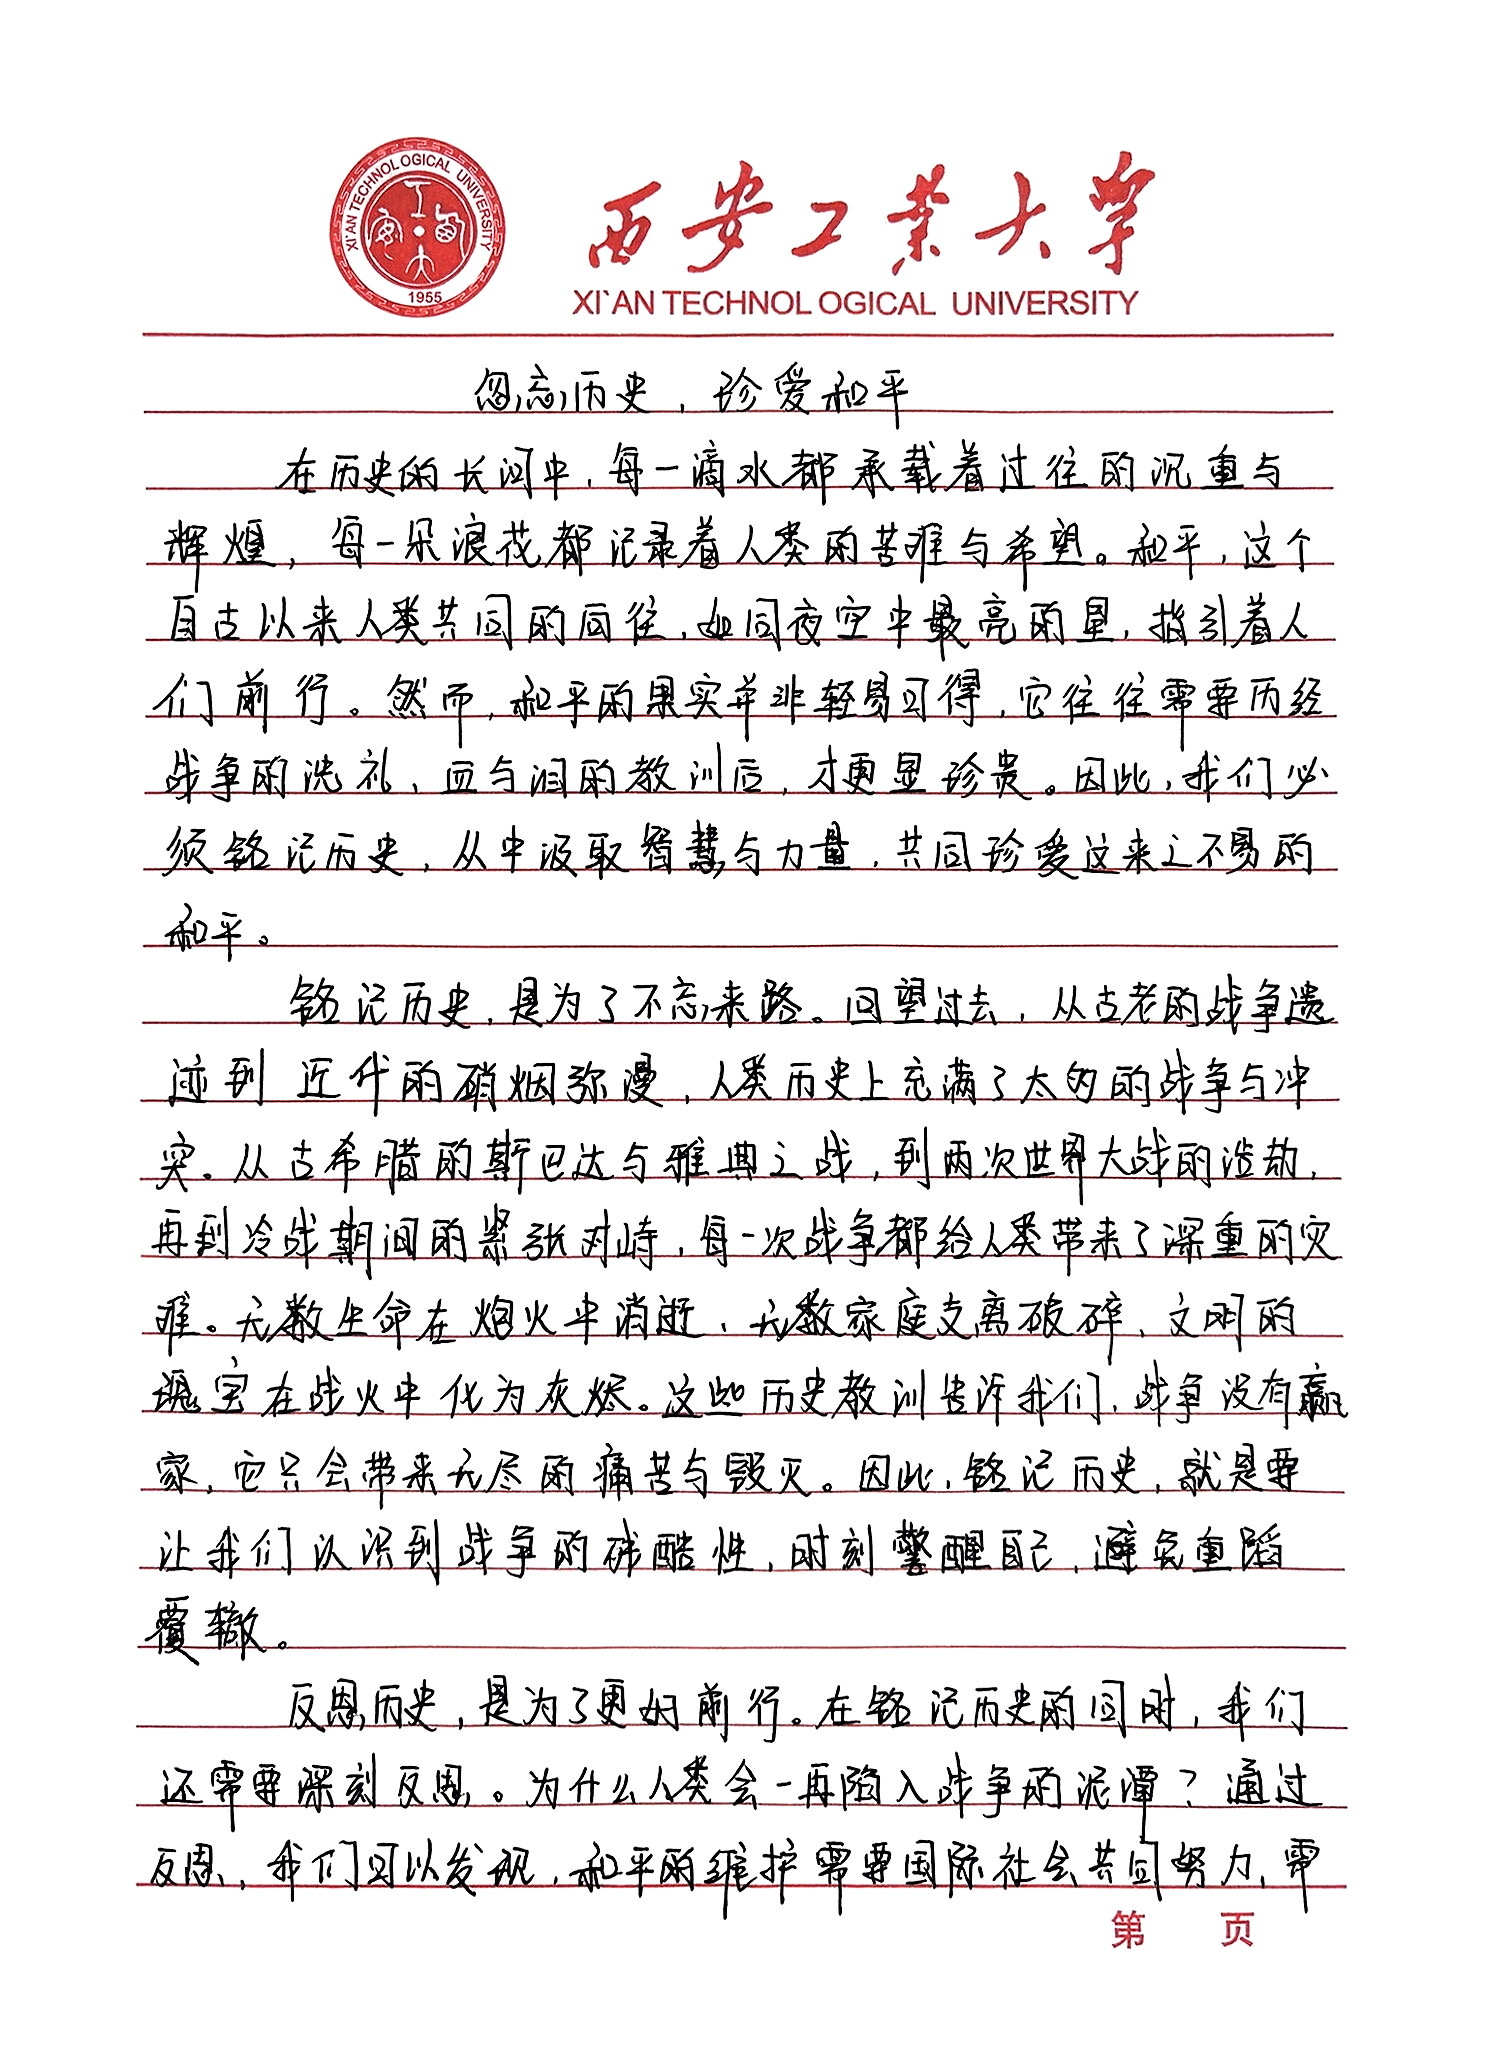 XI`AN TECHNOLOGICAL UNIVERSITY
1955
西安工业大学
XI`AN TECHNOLOGICAL UNIVERSITY
忽忘历史，珍爱和平
在历史的长河中，每一滴水都承载着过往的沉重与
辉煌，每一朵浪花都记录着人类的苦难与希望。和平，这个
自古以来人类共同的向往，如同夜空中最亮的星，指引着人
们前行。然而，和平的果实并非轻易可得，它往往需要历经
战争的洗礼，血与泪的教训后，才更显珍贵。因此，我们必
须铭记历史，从中汲取智慧与力量，共同珍爱这来之不易的
和平。
铭记历史，是为了不忘来路。回望过去，从古老的战争遗
迹到近代的硝烟弥漫，人类历史上充满了太多的战争与冲
突。从古希腊的斯巴达与雅典之战，到两次世界大战的浩劫，
再到冷战期间的紧张对峙，每一次战争都给人类带来了深重的灾
难。无数生命在炮火中消逝，无数家庭支离破碎，文明的
瑰宝在战火中化为灰烬。这些历史教训告诉我们，战争没有赢
家，它只会带来无尽的痛苦与毁灭。因此，铭记历史，就是要
让我们认识到战争的残酷性，时刻警醒自己，避免重蹈
覆辙。
反思历史，是为了更好前行。在铭记历史的同时，我们
还需要深刻反思。为什么人类会一再陷入战争的泥潭？通过
反思，我们可以发现，和平的维护需要国际社会共同努力，需
第 页